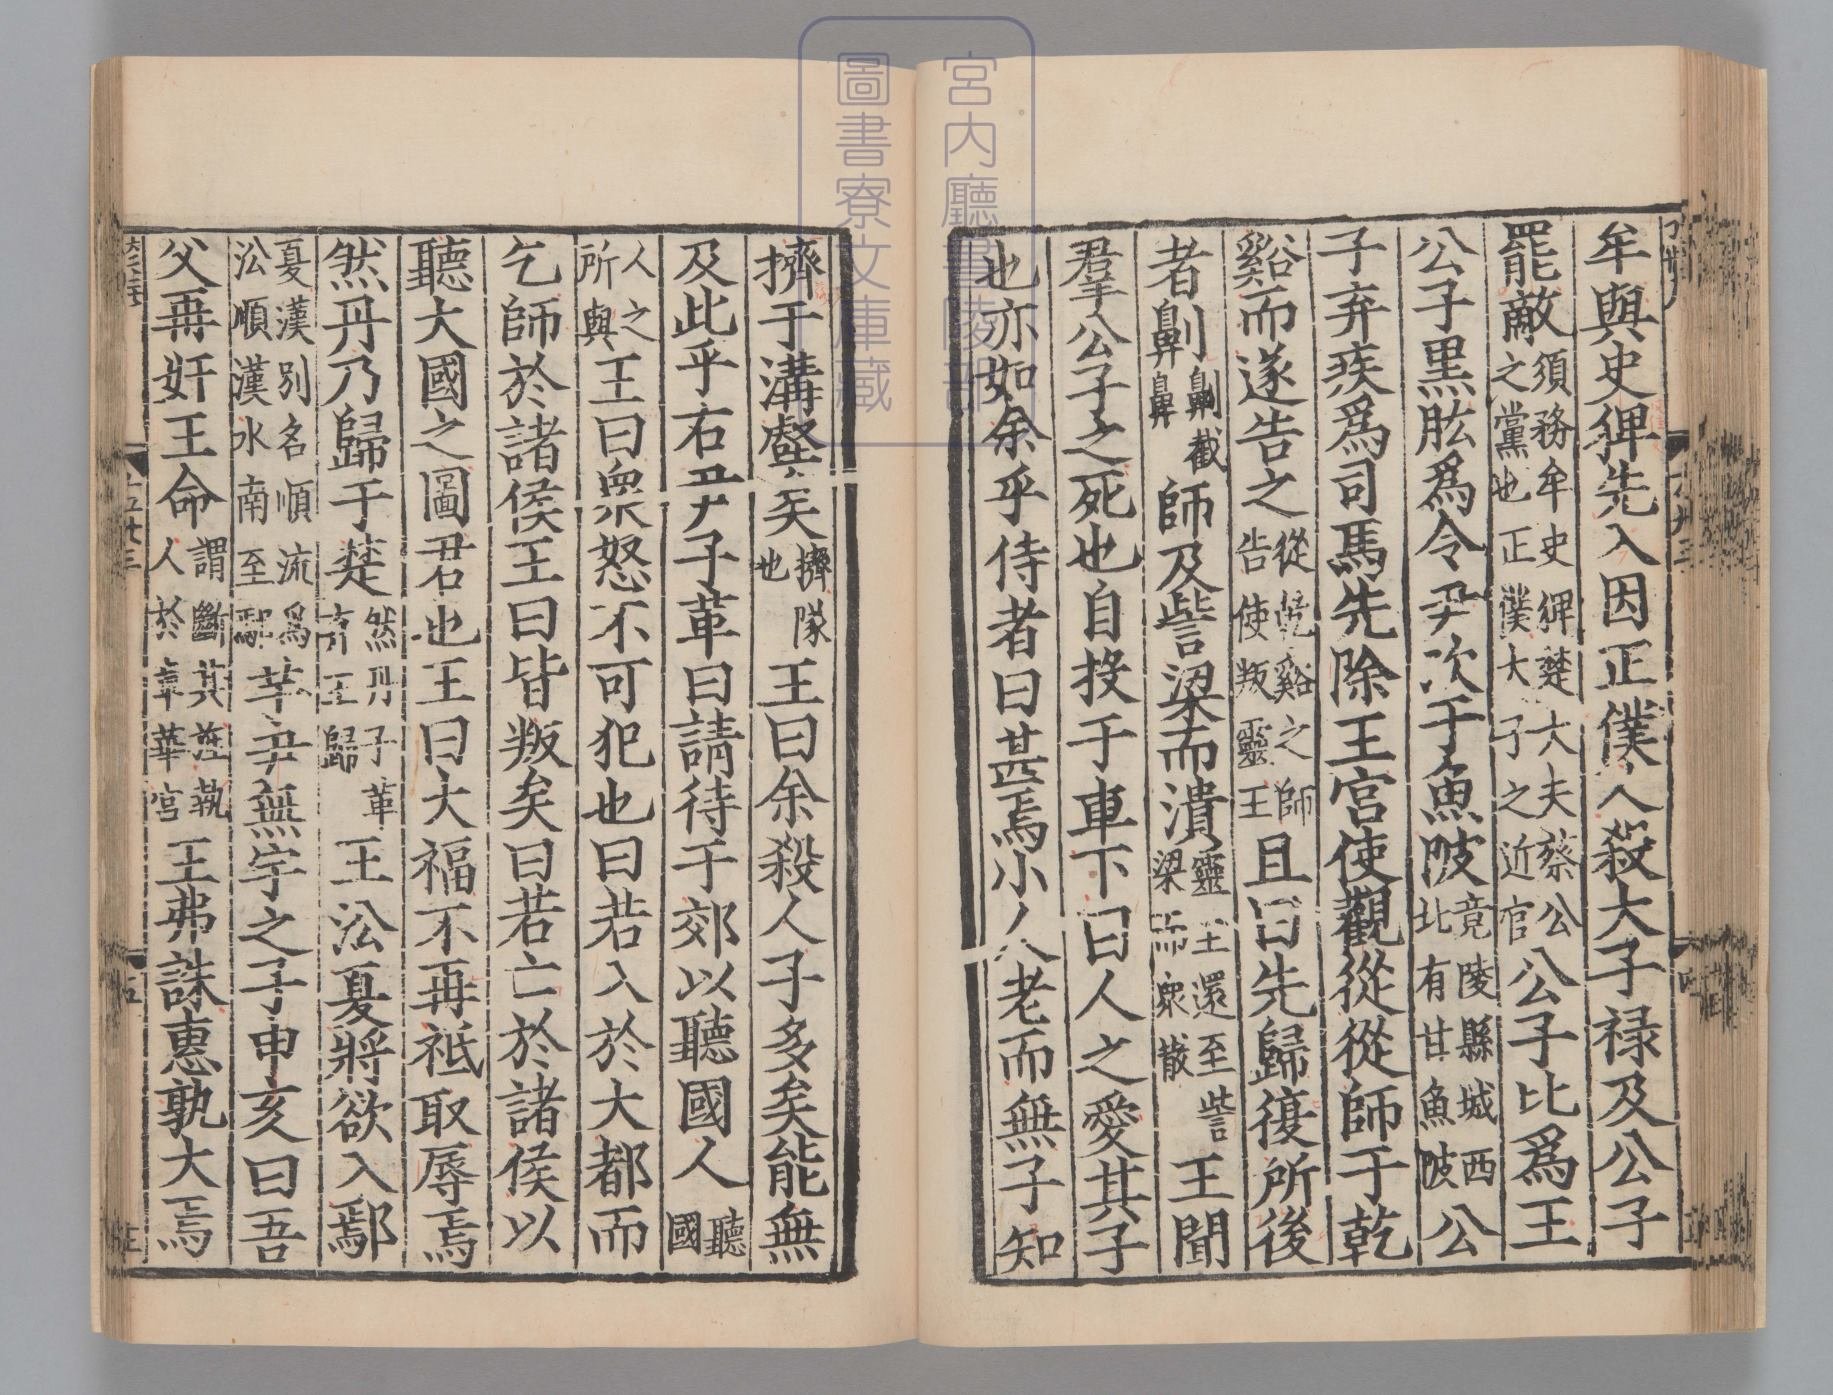 牟與史猈先入因正僕人殺大子禄及公子
罷敵須務牟史猈楚大夫蔡公之黨也正僕大子之近官公子比爲王
公子黑肱爲令尹次于魚陂竟陵縣城西北有甘魚陂公
子弃疾爲司馬先除王宮使觀從從師于乾
谿而遂告之從乾谿之師告使叛靈王且曰先歸復所後
者劓劓截鼻師及訾梁而潰靈王還至訾梁而衆散王聞
羣公子之死也自投于車下曰人之愛其子
也亦如余乎侍者曰甚焉小人老而無子知
擠于溝壑矣擠隊也王曰余殺人子多矣能無
及此乎右尹子革曰請待于郊以聽國人聽國
人之所與王曰衆怒不可犯也曰若入於大都而
乞師於諸侯王曰皆叛矣曰若亡於諸侯以
聽大國之圖君也王曰大福不再祗取辱焉
然丹乃歸于楚然丹子革弃王歸王沿夏將欲入鄢
夏漢別名順流爲沿順漢水南至鄢芋尹無宇之子申亥曰吾
父再奸王命謂斷王旌執人於章華宮王弗誅惠孰大焉
宮内廳書陵部
圖書寮文庫藏